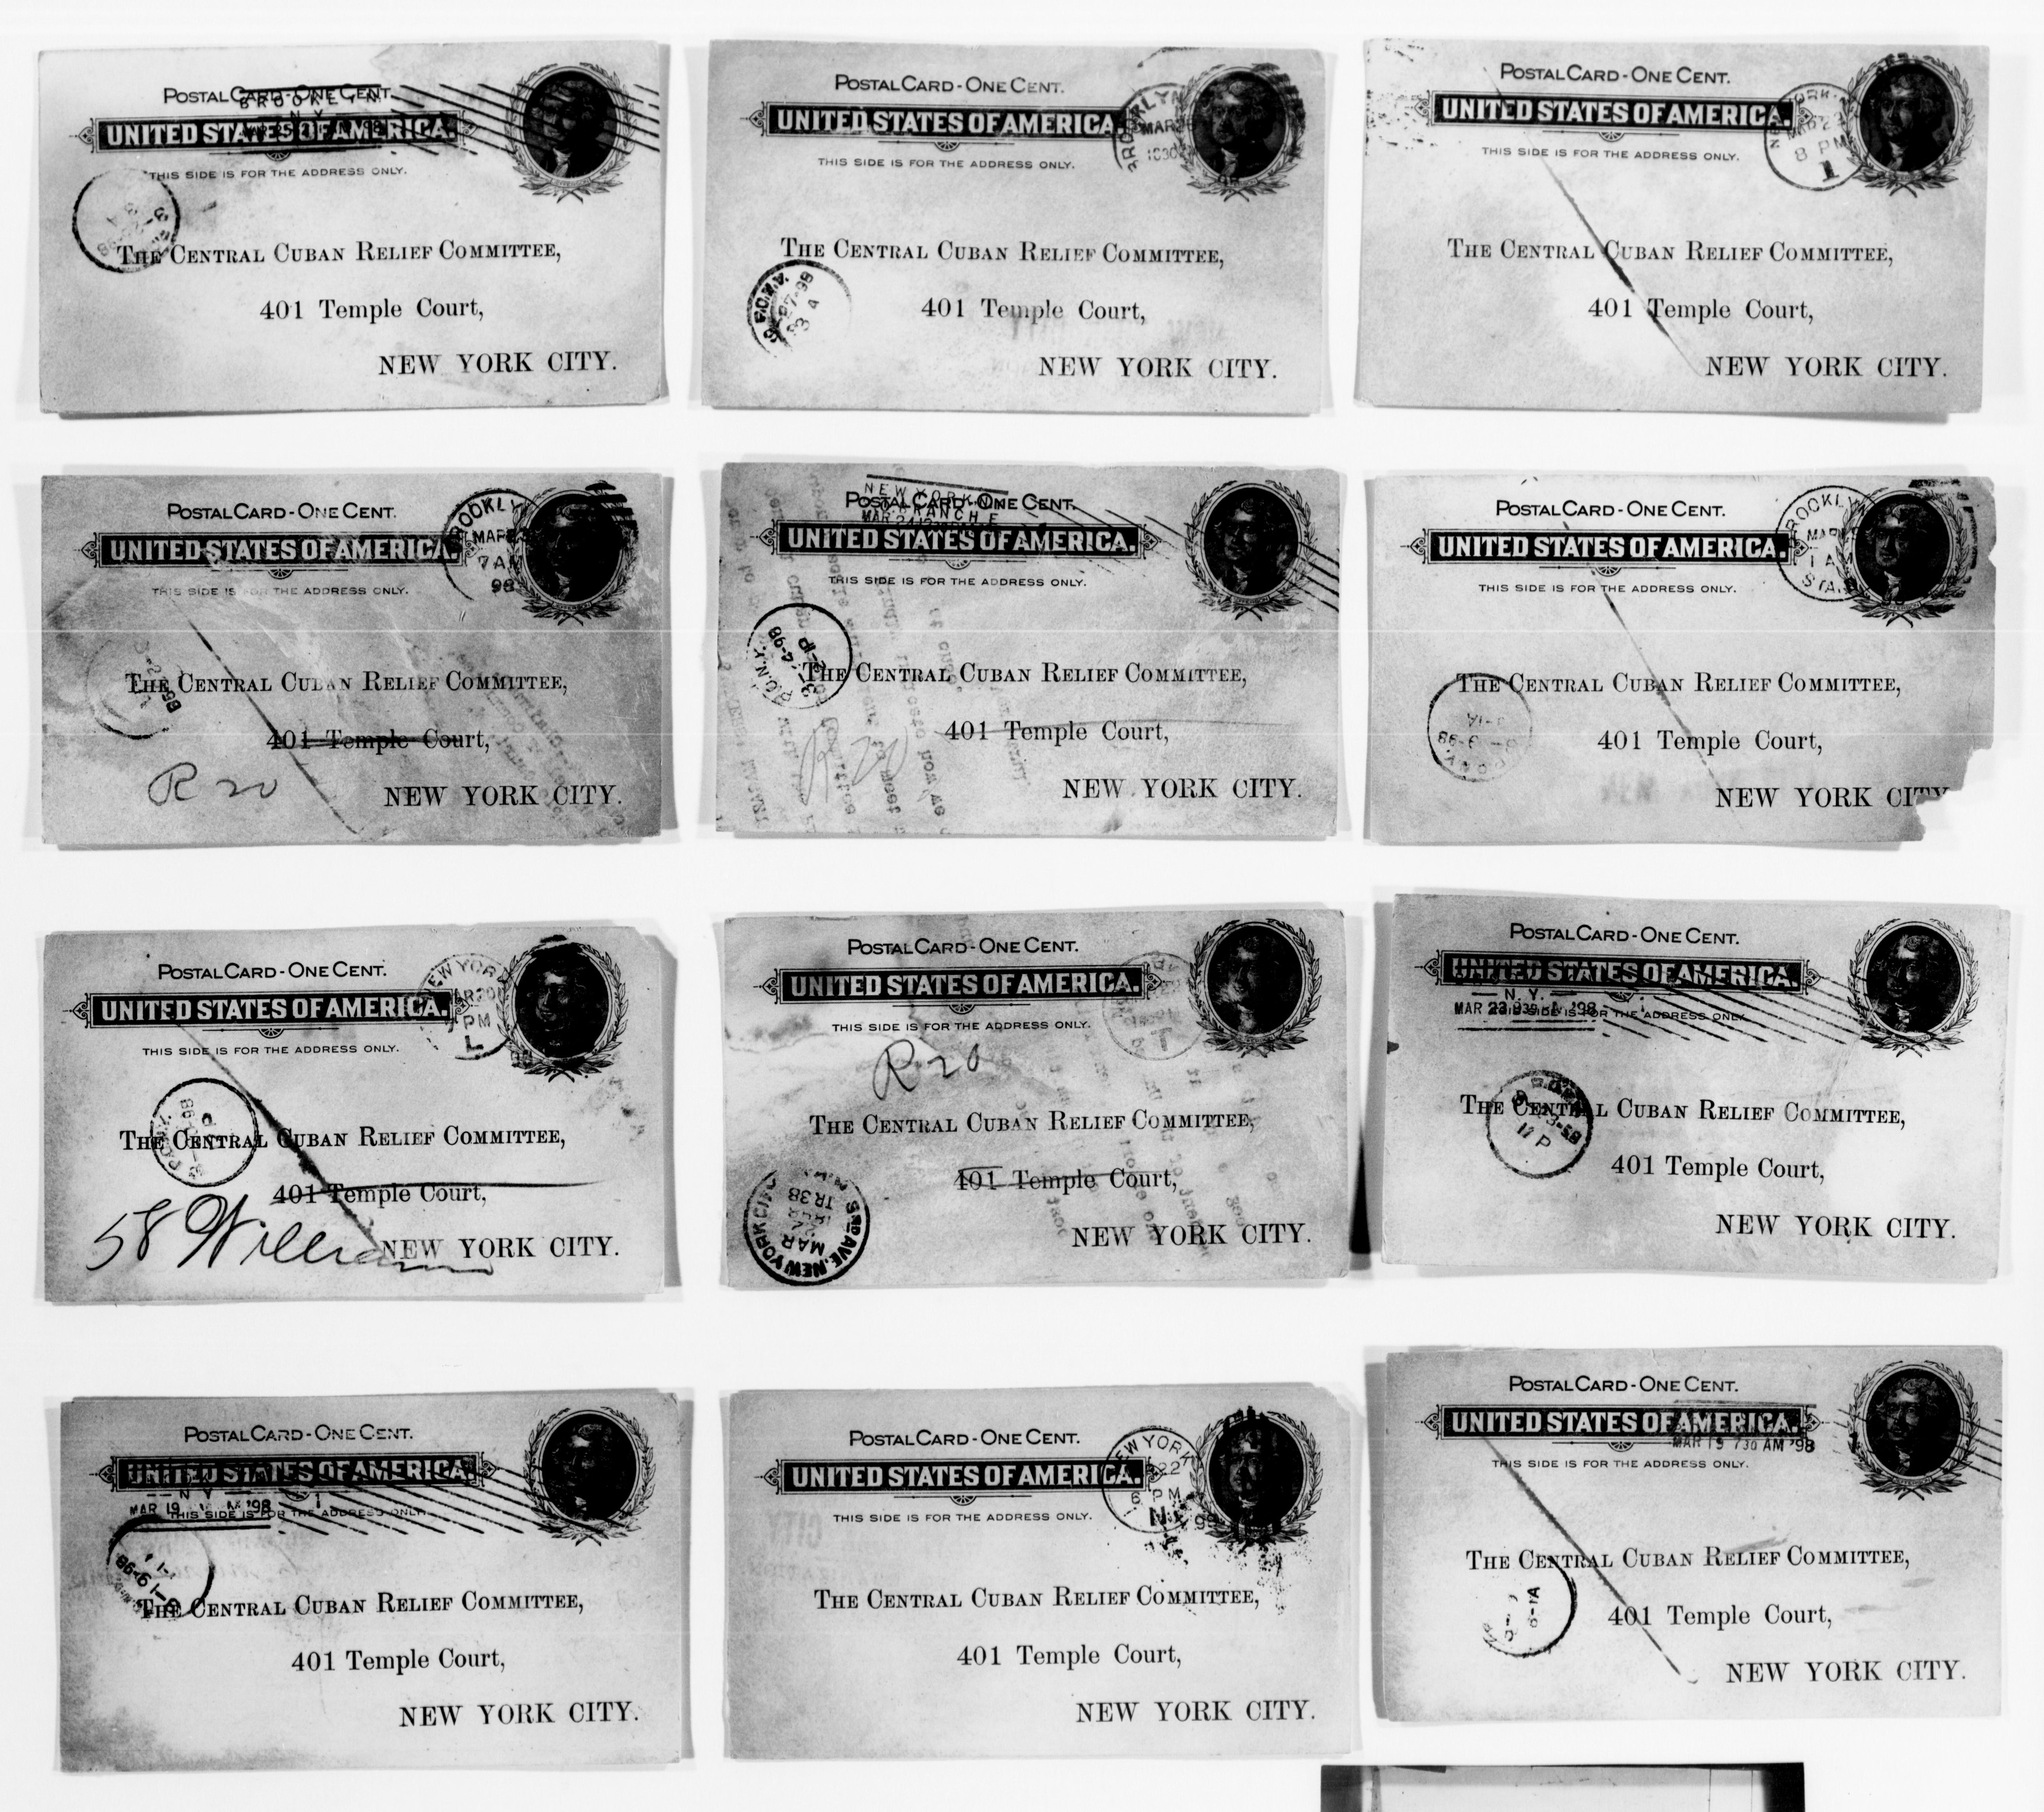 POSTAL CARD - ONE CENT.
BROOKLYN
N.Y.
UNITED STATES OF AMERICA.
THIS SIDE IS FOR THE ADDRESS ONLY.
THE CENTRAL CUBAN RELIEF COMMITTEE,
401 Temple Court,
NEW YORK CITY.
POSTAL CARD - ONE CENT.
UNITED STATES OF AMERICA.
BROOKLYN
MAR
1030
THIS SIDE IS FOR THE ADDRESS ONLY.
THE CENTRAL CUBAN RELIEF COMMITTEE,
401 Temple Court,
NEW YORK CITY.
POSTAL CARD - ONE CENT.
UNITED STATES OF AMERICA.
8 PM
1
THIS SIDE IS FOR THE ADDRESS ONLY.
THE CENTRAL CUBAN RELIEF COMMITTEE,
401 Temple Court,
NEW YORK CITY.
POSTAL CARD - ONE CENT.
UNITED STATES OF AMERICA.
ROOKLY
MAR
7 AM
98
THIS SIDE IS FOR THE ADDRESS ONLY.
THE CENTRAL CUBAN RELIEF COMMITTEE,
401 Temple Court,
R 20
NEW YORK CITY.
NEW YORK N.Y.
POSTAL CARD - ONE CENT.
BRANCH E
MAR 24
UNITED STATES OF AMERICA.
THIS SIDE IS FOR THE ADDRESS ONLY.
THE CENTRAL CUBAN RELIEF COMMITTEE,
401 Temple Court,
R 20
NEW YORK CITY.
POSTAL CARD - ONE CENT.
UNITED STATES OF AMERICA.
ROOKLY
MAR
1 A
STA.
THIS SIDE IS FOR THE ADDRESS ONLY.
THE CENTRAL CUBAN RELIEF COMMITTEE,
401 Temple Court,
NEW YORK CITY
POSTAL CARD - ONE CENT.
UNITED STATES OF AMERICA.
EW YORK
AR 20
PM
L
THIS SIDE IS FOR THE ADDRESS ONLY.
THE CENTRAL CUBAN RELIEF COMMITTEE,
401 Temple Court,
58 William
NEW YORK CITY.
POSTAL CARD - ONE CENT.
UNITED STATES OF AMERICA.
THIS SIDE IS FOR THE ADDRESS ONLY.
R 20
THE CENTRAL CUBAN RELIEF COMMITTEE,
401 Temple Court,
NEW YORK CITY.
3RD AVE. NEW YORK CITY
MAR
POSTAL CARD - ONE CENT.
UNITED STATES OF AMERICA.
N.Y.
MAR 23 '98
THIS SIDE IS FOR THE ADDRESS ONLY
11 P
THE CENTRAL CUBAN RELIEF COMMITTEE,
401 Temple Court,
NEW YORK CITY.
POSTAL CARD - ONE CENT.
UNITED STATES OF AMERICA.
N Y
MAR 19 '98
THIS SIDE IS FOR THE ADDRESS ONLY.
THE CENTRAL CUBAN RELIEF COMMITTEE,
401 Temple Court,
NEW YORK CITY.
POSTAL CARD - ONE CENT.
UNITED STATES OF AMERICA.
EW YORK
22
6 PM
THIS SIDE IS FOR THE ADDRESS ONLY.
THE CENTRAL CUBAN RELIEF COMMITTEE,
401 Temple Court,
NEW YORK CITY.
POSTAL CARD - ONE CENT.
UNITED STATES OF AMERICA.
MAR 19 730 AM '98
THIS SIDE IS FOR THE ADDRESS ONLY.
THE CENTRAL CUBAN RELIEF COMMITTEE,
401 Temple Court,
NEW YORK CITY.